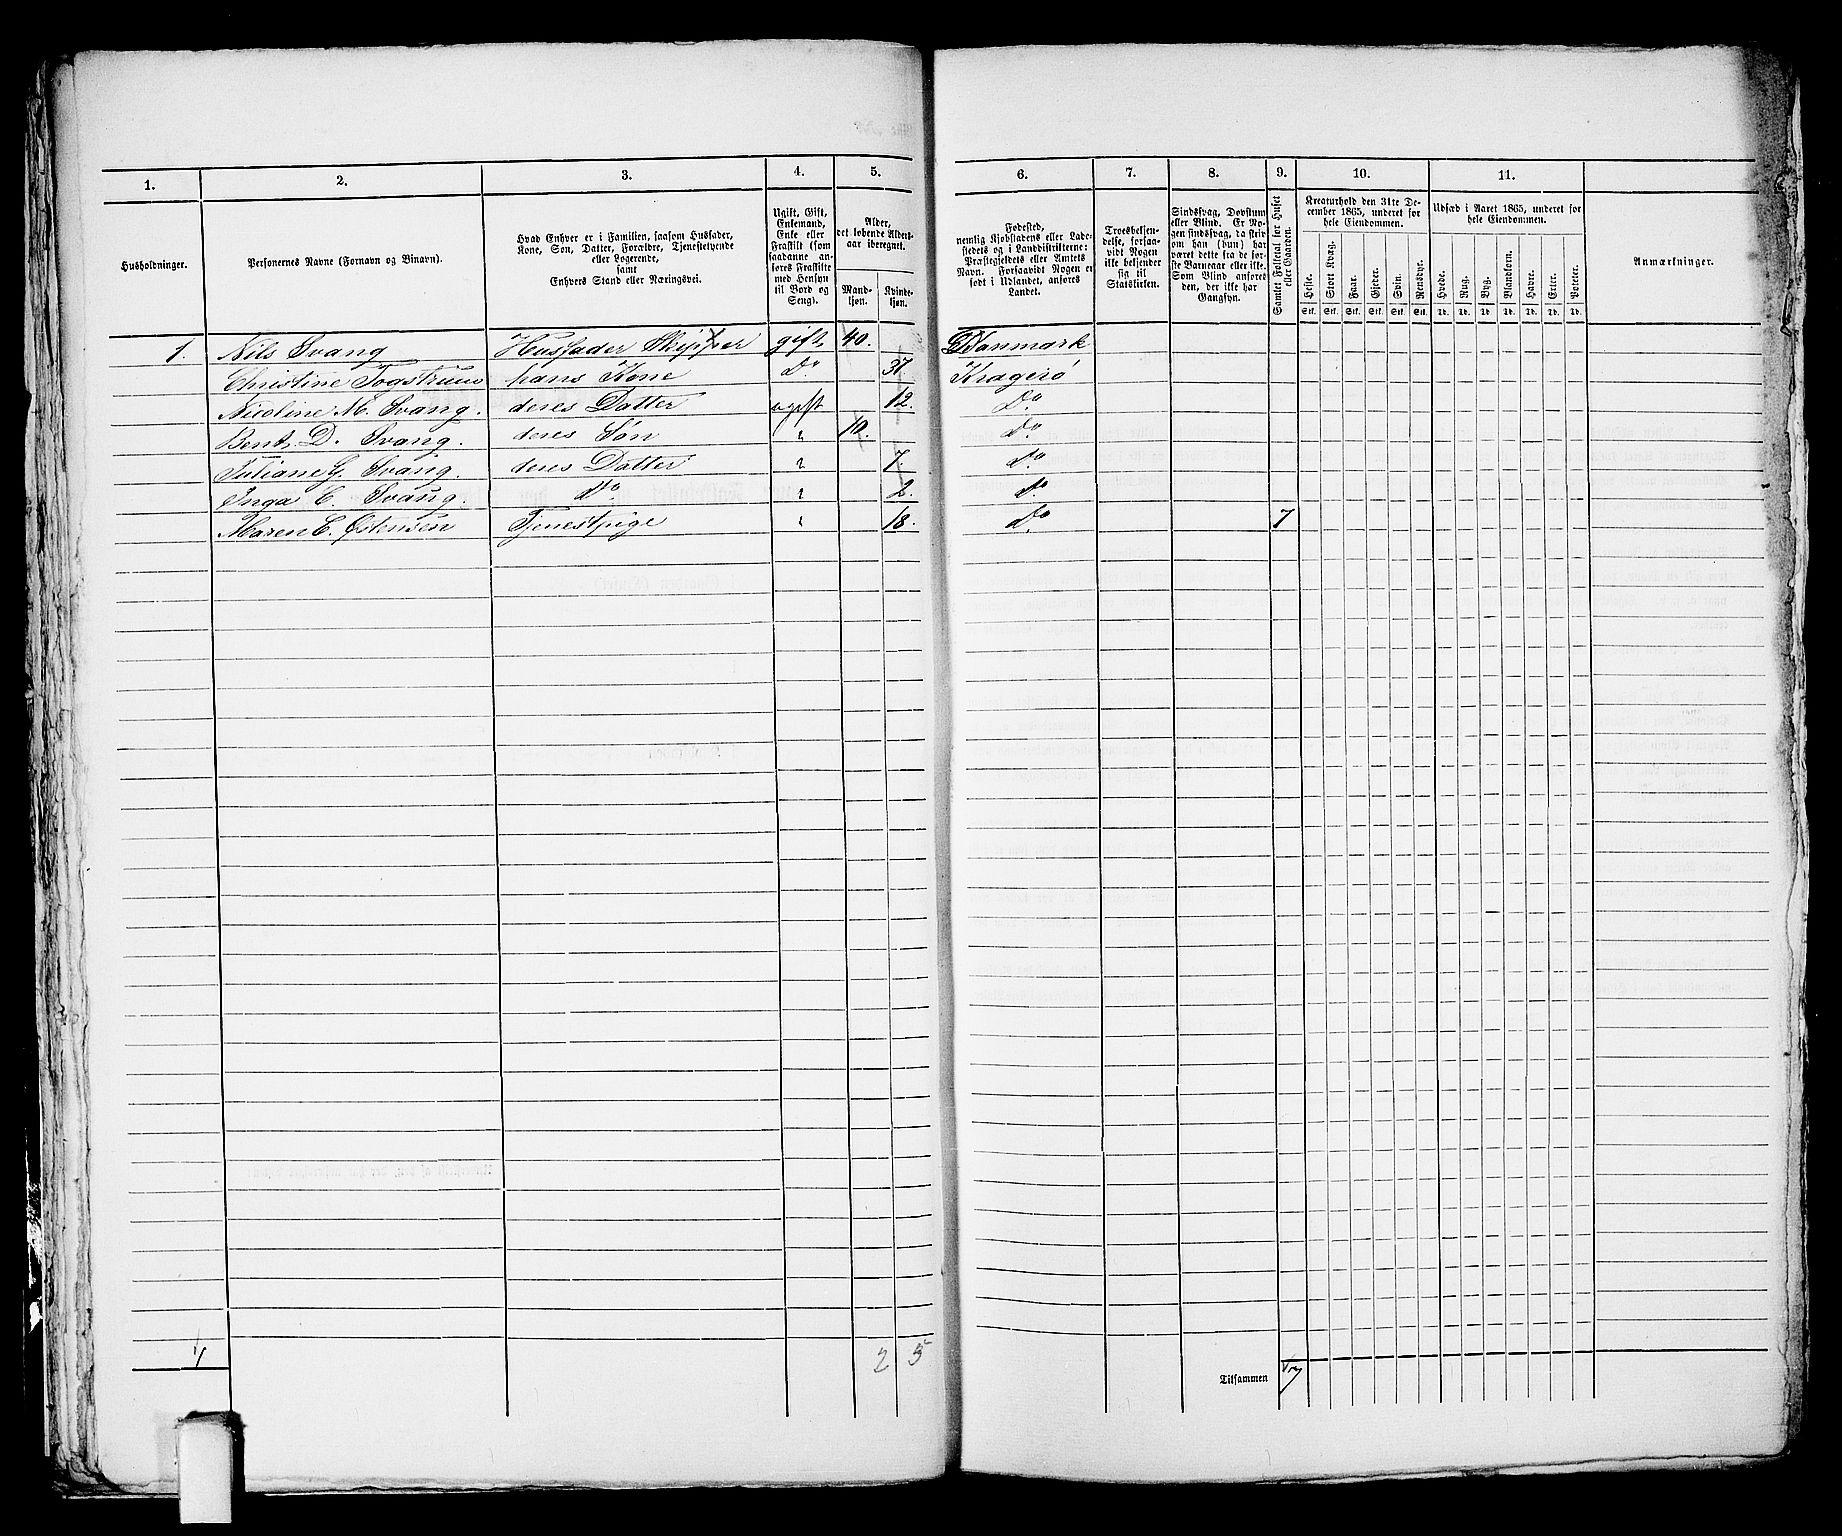 1. 2. 3. 4. 5. 6. 7. 8. 9. 10. 11.
Husholdninger.
Personernes Navne (Fornavn og Binavn).
Hvad Enhver er i Familien, saasom Husfader,
Kone, Søn, Datter, Forældre, Tjenestetyende
eller Logerende,
samt
Enhvers Stand eller Næringsvei.
Ugift, Gift,
Enkemand,
Enke eller
Fraskilt (som
saadanne an-
føres Fraskilte
med Hensyn
til Bord og
Seng).
Alder,
det løbende Alders-
aar iberegnet.
Mand-
kjøn.
Kvinde-
kjøn.
Fødested,
nemlig Kjøbstadens eller Lade-
stedets og i Landdistrikterne:
Præstegjeldets eller Amtets
Navn. Forsaavidt Nogen er
født i Udlandet, anføres
Landet.
Troesbekjen-
delse, forsaa-
vidt Nogen
ikke bekjender
sig til
Statskirken.
Sindssvag, Døvstum
eller Blind. Er No-
gen sindssvag, da skriv
om han (hun) har
været dette fra de før-
ste Barneaar eller ikke.
Som Blind anføres
den, der ikke har
Gangsyn.
Samlet Folketal for Huset
eller Gaarden.
Kreaturhold den 31te De-
cember 1865, underet for
hele Eiendommen.
Heste. Stort Kvæg. Faar. Gjeder. Svin. Rensdyr.
Stk. Stk. Stk. Stk. Stk. Stk.
Udsæd i Aaret 1865, underet for
hele Eiendommen.
Hvede. Rug. Byg. Blandkorn. Havre. Erter. Poteter.
Td. Td. Td. Td. Td. Td. Td.
Anmærkninger.
1. Nils Svang Husfader Skipper gift 40. Danmark
Christine Togstrum hans Kone Do 37 Kragerö
Nicoline M. Svang. deres Datter ugift 12. Do.
Bent D. Svang. deres Søn " 10. Do.
Juliane G. Svang. deres Datter " 7. Do.
Inga C. Svang. Do. " 2. Do.
Maren C. Østensen Tjenestpige " 18. Do. 7
1 2 5 Tilsammen 7